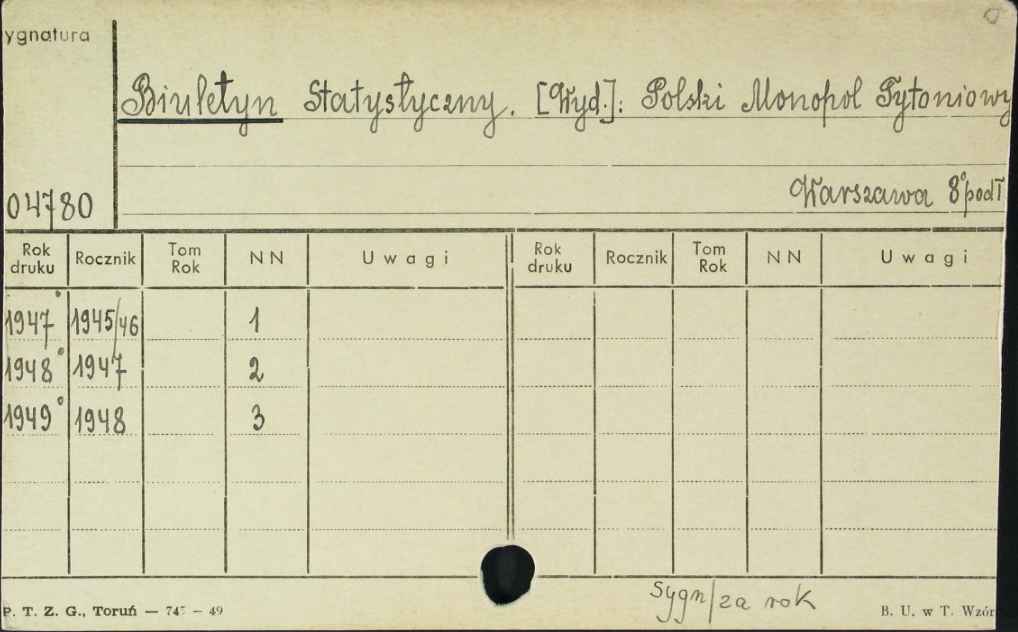 ygnatura
Biuletyn Statystyczny. [Wyd.]: Polski Monopol Tytoniowy
04780
Warszawa 8° podł
Rok druku Rocznik Tom Rok NN Uwagi Rok druku Rocznik Tom Rok NN Uwagi
1947° 1945/46 1
1948° 1947 2
1949° 1948 3
Sygn/za rok
P. T. Z. G., Toruń — 49
B. U. w T. Wzór